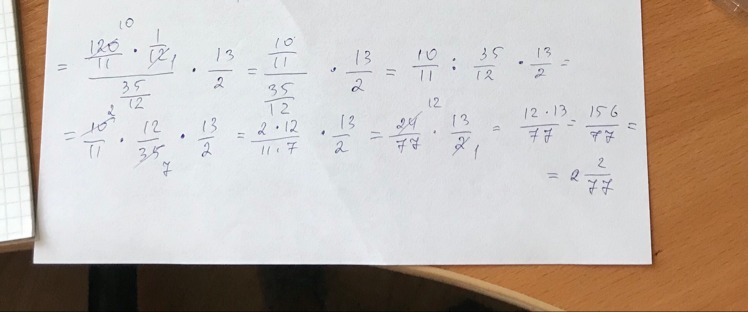 = (120/11 · 1/12) / (35/12) · 13/2 = (10/11) / (35/12) · 13/2 = 10/11 : 35/12 · 13/2 =
= 10/11 · 12/35 · 13/2 = 2·12/11·7 · 13/2 = 24/77 · 13/2 = 12·13/77 = 156/77 =
= 2 2/77